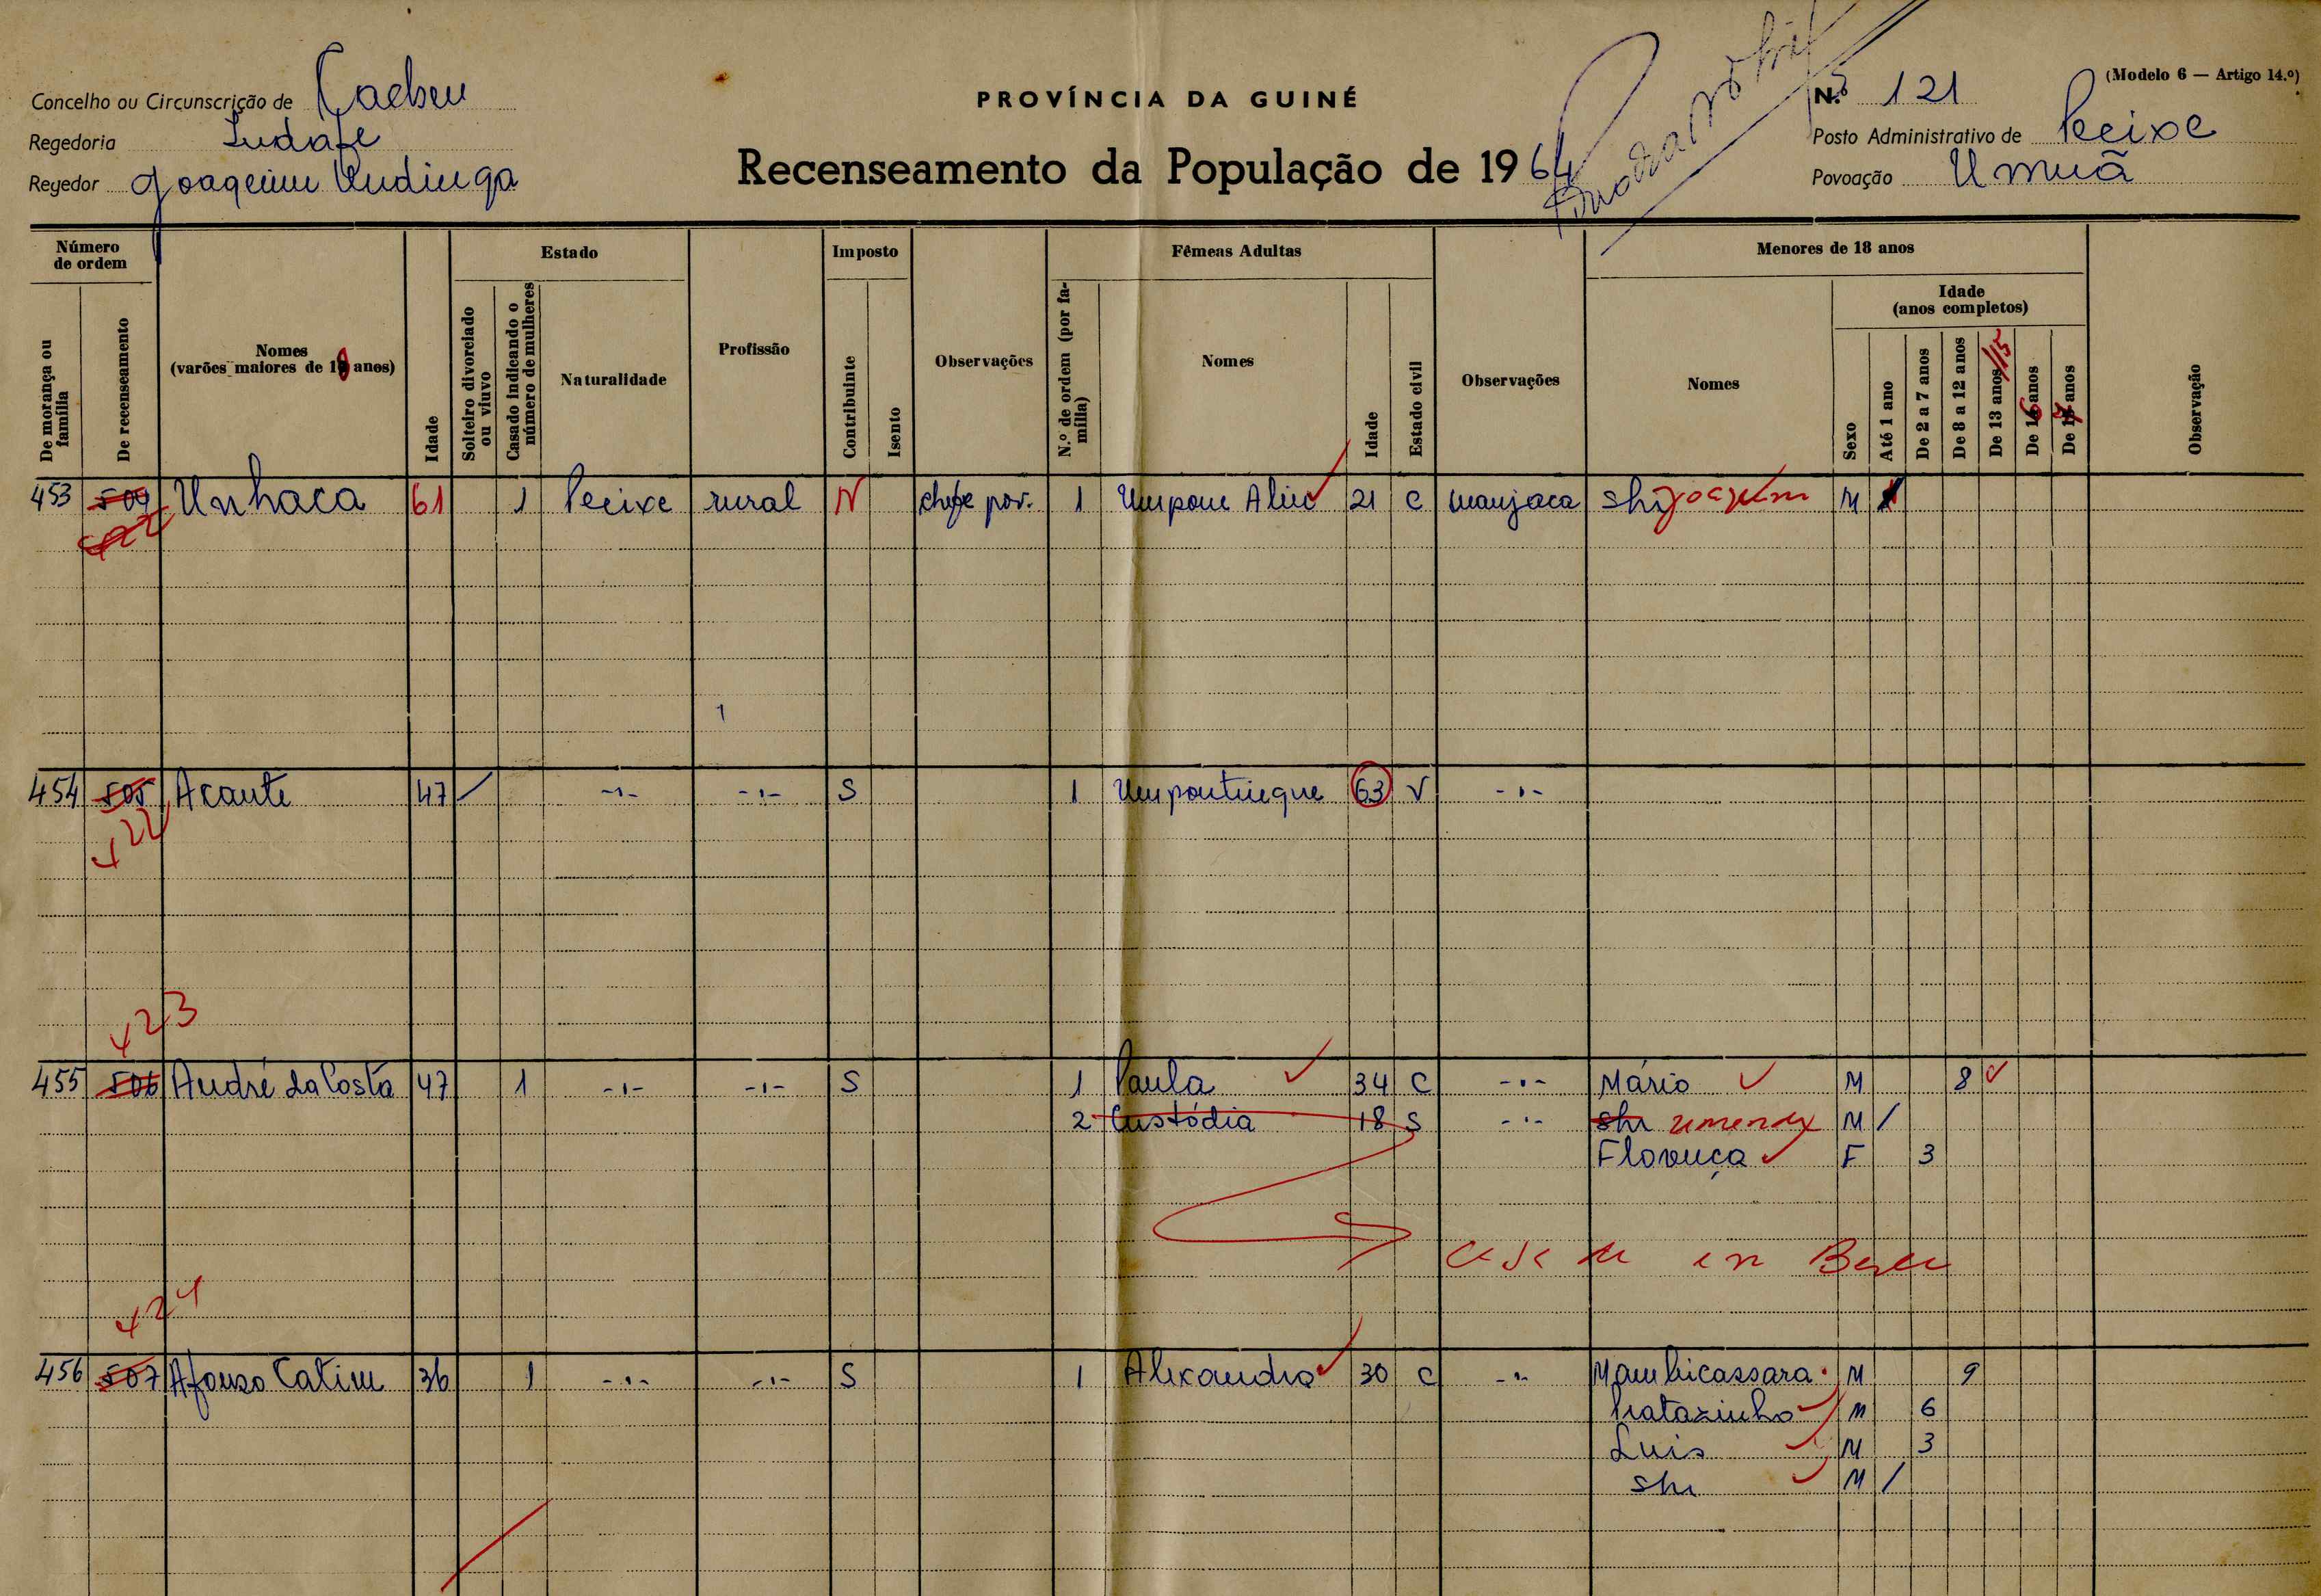 (Modelo 6 — Artigo 14.º)
Concelho ou Circunscrição de Cacheu
PROVÍNCIA DA GUINÉ
N.º 121
Regedoria
Posto Administrativo de Pecixe
Recenseamento da População de 1964
Regedor Joaquim
Povoação Umuã
Número de ordem
De morança ou família
De recenseamento
Nomes (varões maiores de 18 anos)
Idade
Estado
Solteiro divorciado ou viuvo
Casado indicando o número de mulheres
Naturalidade
Profissão
Imposto
Contribuinte
Isento
Observações
Fêmeas Adultas
N.º de ordem (por família)
Nomes
Idade
Estado civil
Observações
Menores de 18 anos
Nomes
Sexo
Idade (anos completos)
Até 1 ano
De 2 a 7 anos
De 8 a 12 anos
De 13 anos /15
De 16 anos
De 17 anos
Observação
453 504 Unhaca 61 1 Pecixe rural N chefe pov. 1 21 C manjaca shi joaquim M
454 505 Acante 47 / -"- -"- S 1 Umpontinegue 63 V -"-
422
423
455 506 André da Costa 47 1 -"- -"- S 1 Paula 34 C -"- Mário M 8
2 Custódia 18 S -"- shi M /
F 3
em
424
456 507 Afonso Catim 36 1 -"- -"- S 1 Alexandra 30 C -"- Mambicassara M 9
M 6
Luis M 3
shi M /